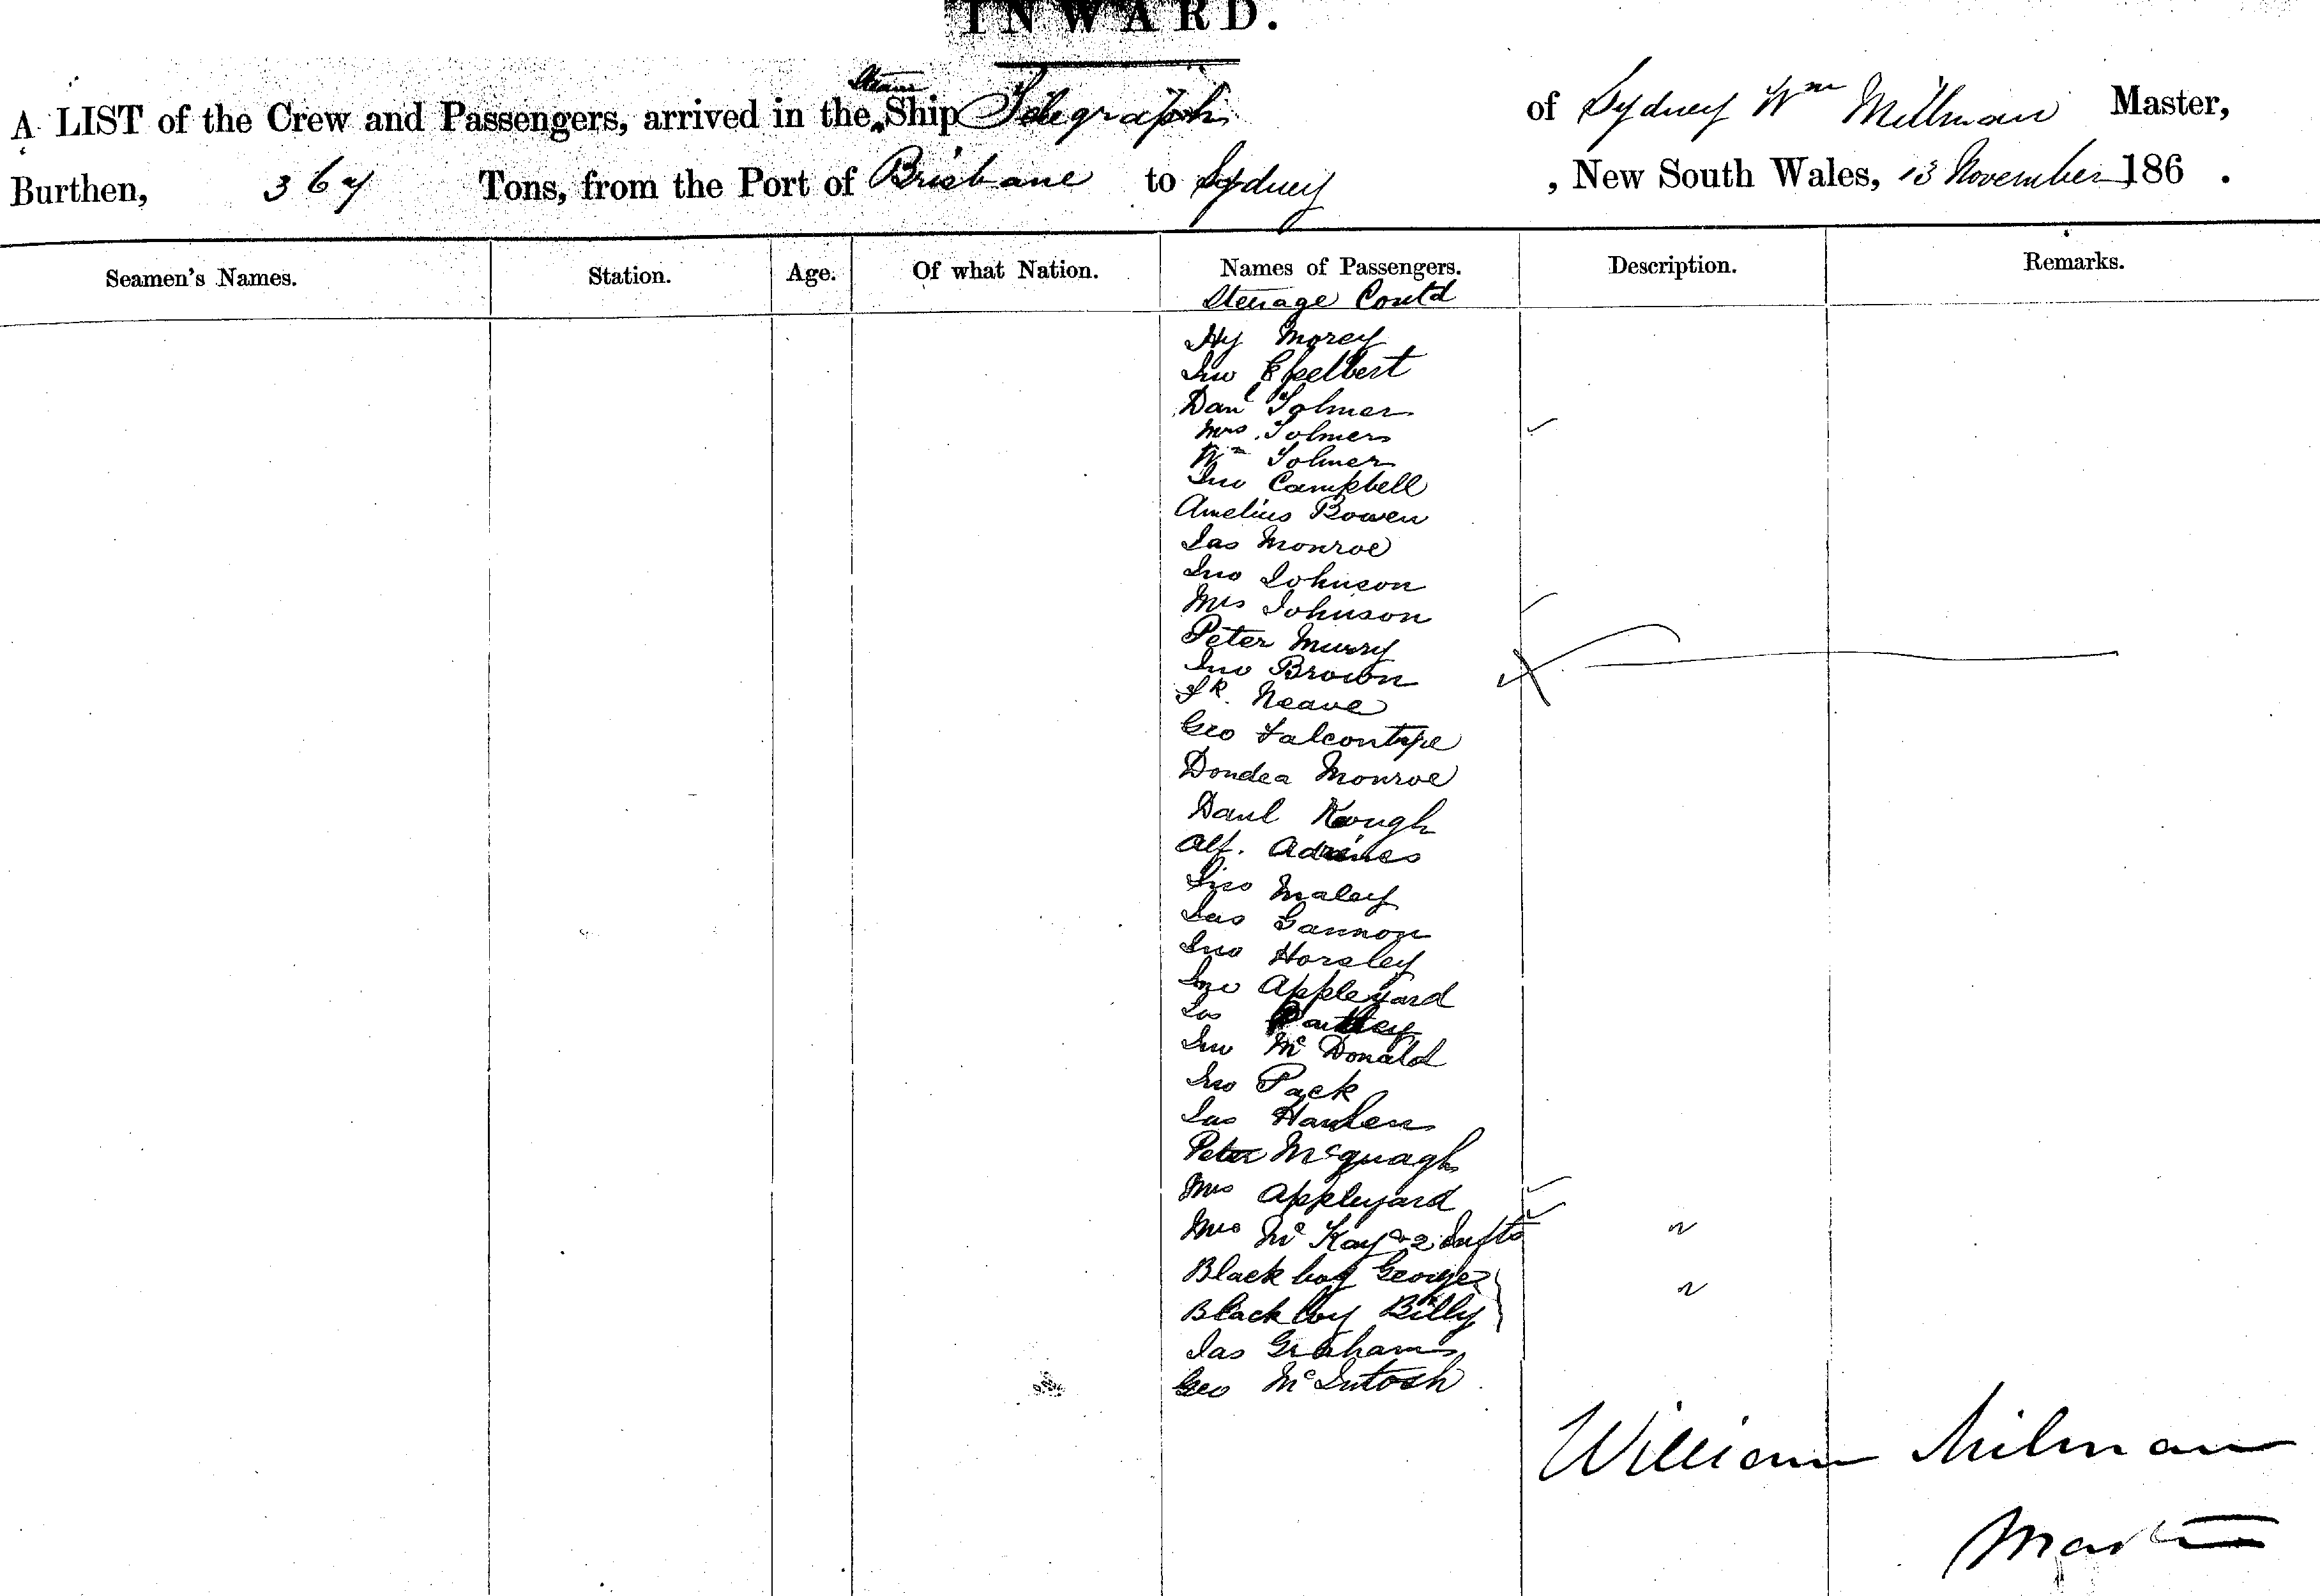 INWARD.
Steam
A LIST of the Crew and Passengers, arrived in the Ship Telegraph of Sydney Wm Millman Master,
Burthen, 367 Tons, from the Port of Brisbane to Sydney , New South Wales, 13 November 186 .
Seamen's Names. Station. Age. Of what Nation. Names of Passengers. Description. Remarks.
Steerage Contd
Hy Morey
Jno
Danl Tolmer
Mrs Tolmer
Wm Tolmer
Jno Campbell
Amelius Bowen
Jas Monroe
Jno Johnson
Mrs Johnson
Peter Murry
Jno Brown
Neave
Geo
Dondea Monroe
Danl Keough
Alf.
Jno Maley
Jas Gannon
Jno Horsley
Jno Appleyard
Jas
Jno McDonald
Jno Pack
Jas
Peter McQuagh
Mrs Appleyard
Mrs McKay & 2 Infts
Black boy George
Black boy Billy
Jas Graham
Geo McIntosh
William Milman
Master